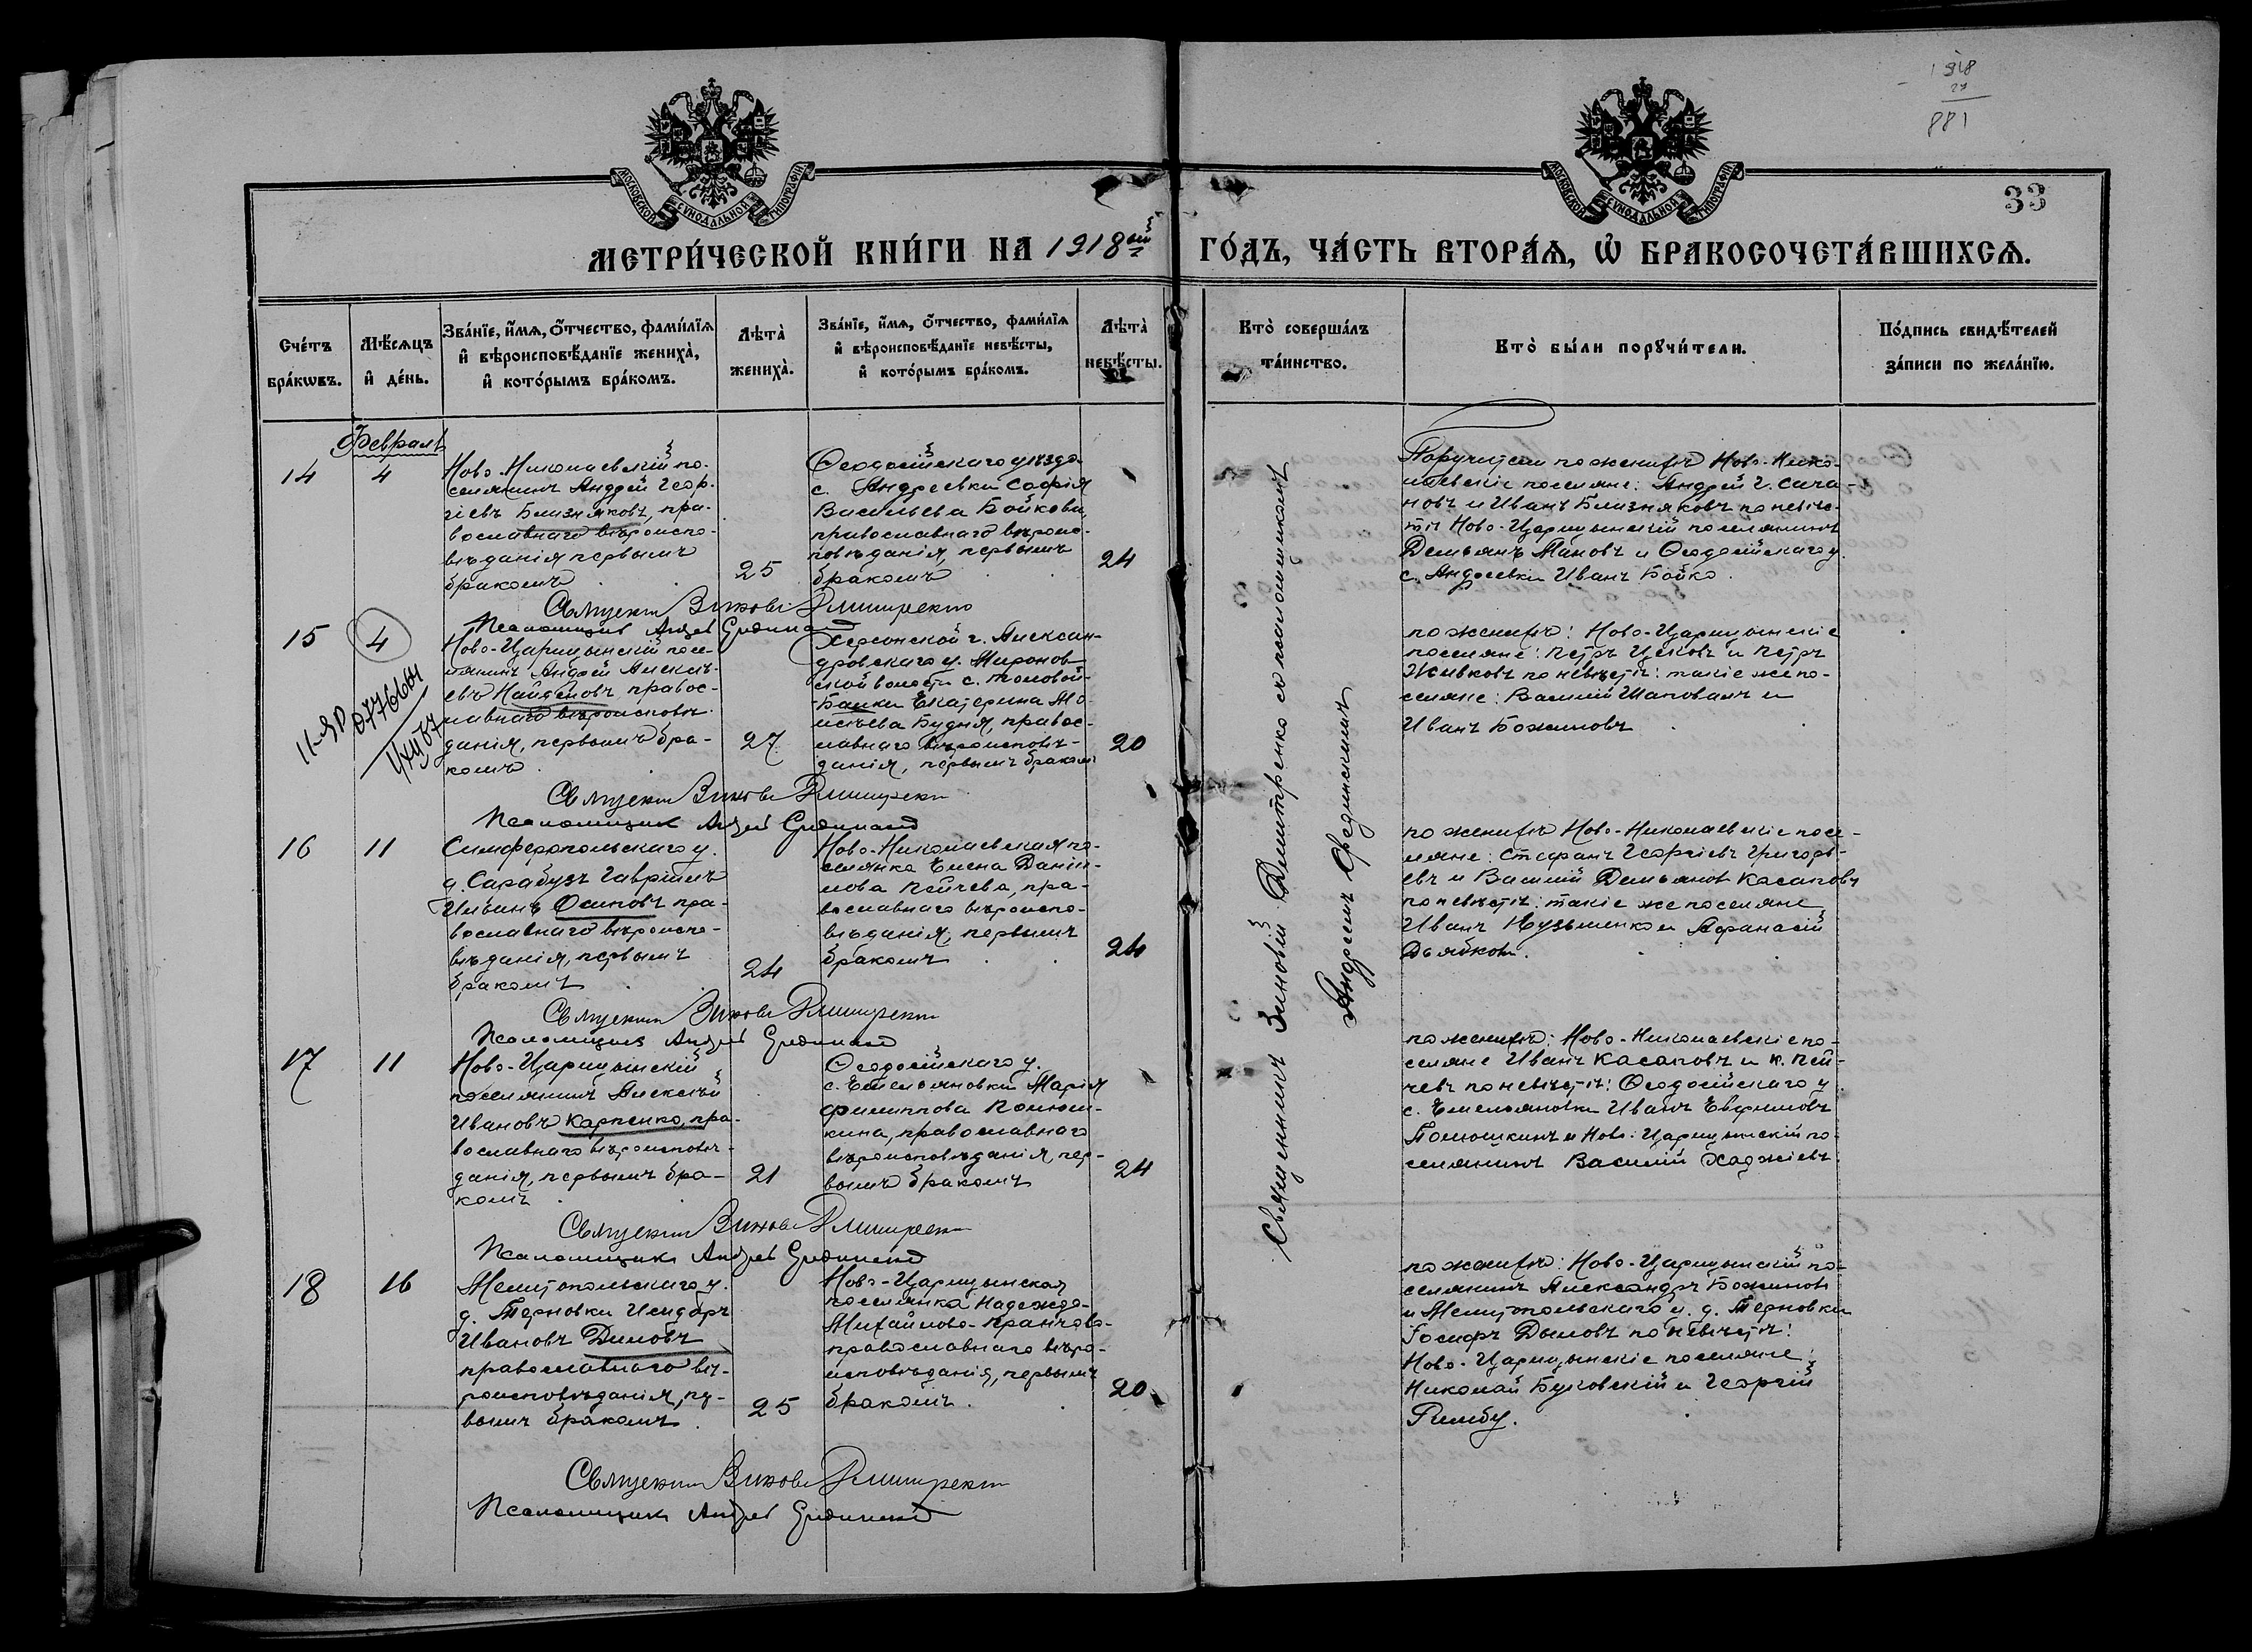 1918
27
881
33
МОСКОВСКОЙ СѴНОДАЛЬНОЙ ТИПОГРАФІИ
МОСКОВСКОЙ СѴНОДАЛЬНОЙ ТИПОГРАФІИ
МЕТРИ́ЧЕСКОЙ КНИ́ГИ НА 1918ый ГО́ДЪ, ЧА́СТЬ ВТОРА́Ѧ, Ѽ БРАКОСОЧЕТА́ВШИХСѦ.
Сче́тъ бра́кѡвъ.
Мѣ́сѧцъ и҆ де́нь.
Зва́нїе, и҆́мѧ, ѻ҆́тчество, фами́лїѧ и҆ вѣроисповѣ́данїе жениха̀, и҆ кото́рымъ бра́комъ.
Лѣта̀ жениха̀.
Зва́нїе, и҆́мѧ, ѻ҆́тчество, фами́лїѧ и҆ вѣроисповѣ́данїе невѣ́сты, и҆ кото́рымъ бра́комъ.
Лѣта̀ невѣ́сты.
Кто̀ соверша́лъ та́инство.
Кто̀ бы́ли порꙋчи́тели.
По́дпись свидѣ́телей за́писи по жела́нїю.
Февраль
14
4
Ново-Николаевскій по-
селянинъ Андрей Геор-
гіевъ Близняковъ, пра-
вославнаго вѣроиспо-
вѣданія первымъ
бракомъ
25
Ѳеодосійскаго уѣзда
с. Андреевки Софія
Васильева Бойкова,
православнаго вѣроис-
повѣданія, первымъ
бракомъ
24
Поручители по женихѣ Ново-Нико-
лаевскіе поселяне: Андрей Г. Сача-
новъ и Иванъ Близняковъ по невѣс-
тѣ Ново-Царицынскій поселянинъ
Демьянъ Пановъ и Ѳеодосійскаго у.
с. Андреевки Иванъ Бойко.
Священникъ Зиновій Дмитренко
Псаломщикъ Андрей
15
4
11-ЯР 0776664
Ново-Царицынскій посе-
лянинъ Андрей Алексѣ-
евъ Найденовъ, правос-
лавнаго вѣроисповѣ-
данія, первымъ бра-
комъ
27
Херсонской г. Алексан-
дровскаго у. Мироновской
волости с. Толовой-
Балки Екатерина Мо-
исѣева Будня, правос-
лавнаго вѣроисповѣ-
данія, первымъ бракомъ
20
по женихѣ: Ново-Царицынскіе
поселяне: Петръ Цековъ и Петръ
Живковъ по невѣстѣ: такіе же по-
селяне: Василій Шаповалъ и
Иванъ Божиновъ
Священникъ Зиновій Дмитренко
Псаломщикъ Андрей
16
11
Симферопольскаго у.
д. Сарабузъ Гавріилъ
Осиповъ пра-
вославнаго вѣроиспо-
вѣданія, первымъ
бракомъ
24
Ново-Николаевская по-
селянка Елена Даніи-
лова Пейчева, пра-
вославнаго вѣроиспо-
вѣданія, первымъ
бракомъ
24
по женихѣ Ново-Николаевскіе посе-
ляне: Стефанъ Георгіевъ Григорь-
евъ и Василій Демьяновъ Касаповъ
по невѣстѣ: такіе же поселяне
Иванъ Кузьменко и Афанасій
Дьяковъ.
Священникъ Зиновій Дмитренко
Псаломщикъ Андрей
17
11
Ново-Царицынскій
поселянинъ Алексѣй
Ивановъ Карпенко, пра-
вославнаго вѣроисповѣ-
данія, первымъ бра-
комъ
21
Ѳеодосійскаго у.
с. Емельяновки Марія
Филиппова Полюш-
кина, православнаго
вѣроисповѣданія, пер-
вымъ бракомъ
24
по женихѣ: Ново-Николаевскіе по-
селяне Иванъ Касаповъ и К. Пей-
чевъ по невѣстѣ: Ѳеодосійскаго у.
с. Емельяновки Иванъ Евфимовъ
Полюшкинъ и Ново-Царицынскій по-
селянинъ Василій Хаджіевъ.
Священникъ Зиновій Дмитренко
Псаломщикъ Андрей
18
16
Мелитопольскаго у.
д. Терновки Исидоръ
Ивановъ Димовъ
православнаго вѣ-
роисповѣданія, пер-
вымъ бракомъ.
25
Ново-Царицынская
поселянка Надежда
Михайлова
православнаго вѣро-
исповѣданія, первымъ
бракомъ.
20
по женихѣ: Ново-Царицынскій по-
селянинъ Александръ Божиновъ
и Мелитопольскаго у. д. Терновки
Іосифъ Дымовъ по невѣстѣ:
Ново-Царицынскіе поселяне:
Николай Буковскій и Георгій
Римбу.
Священникъ Зиновій Дмитренко
Псаломщикъ Андрей
Священникъ Зиновій Дмитренко съ псаломщикомъ
Андреемъ Срединскимъ